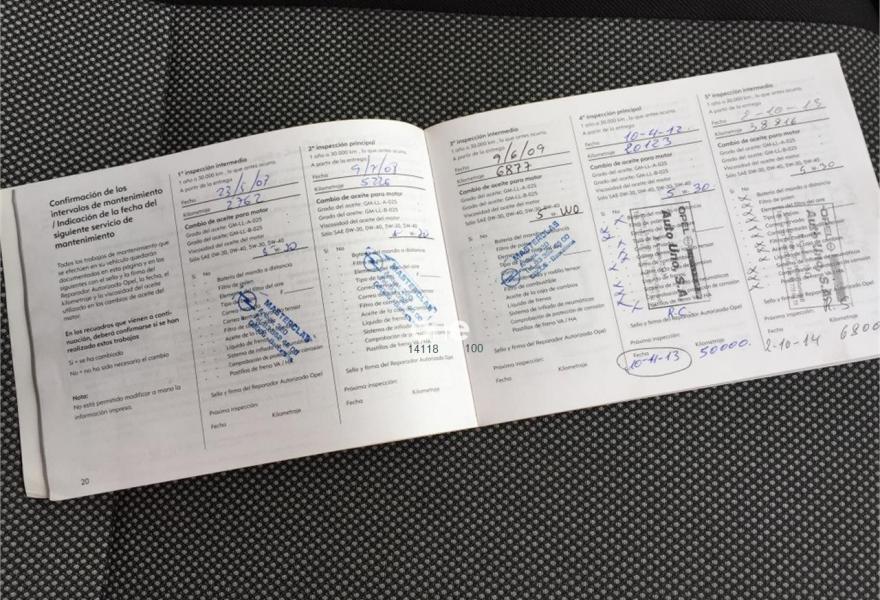 Confirmación de los
intervalos de mantenimiento
/ Indicación de la fecha del
siguiente servicio de
mantenimiento
Todos los trabajos de mantenimiento que
se efectúen en su vehículo quedarán
documentados en esta página y en las
siguientes con el sello y la firma del
Reparador Autorizado Opel, la fecha, el
kilometraje y la viscosidad del aceite
utilizado en los cambios de aceite del
motor.
En los recuadros que vienen a conti-
nuación, deberá confirmarse si se han
realizado estos trabajos
Sí = se ha cambiado
No = no ha sido necesario el cambio
Nota:
No está permitido modificar a mano la
información impresa.
20
1ª inspección intermedia
1 año o 30.000 km , lo que antes ocurra.
A partir de la entrega
Fecha 23/5/07
Kilometraje 2762
Cambio de aceite para motor
Grado del aceite: GM-LL-A-025
Grado del aceite: GM-LL-B-025
Viscosidad del aceite del motor
Sólo SAE 0W-30, 0W-40, 5W-30, 5W-40
Sí No
Batería del mando a distancia
Filtro de polen
MASTERCLAS
Sistema de inflado
Comprobación de
Pastillas de freno VA / HA
Sello y firma del Reparador Autorizado Opel
Próxima inspección:
Fecha Kilometraje
2ª inspección principal
1 año o 30.000 km , lo que antes ocurra.
A partir de la entrega
Fecha 9/7/08
Kilometraje 5226
Cambio de aceite para motor
Grado del aceite: GM-LL-A-025
Grado del aceite: GM-LL-B-025
Viscosidad del aceite del motor
Sólo SAE 0W-30, 0W-40, 5W-30, 5W-40
Sí No
MASTERCLAS
Líquido de freno
Pastillas de freno VA / HA
Sello y firma del Reparador Autorizado Opel
Próxima inspección:
Fecha Kilometraje
14118 100
3ª inspección intermedia
1 año o 30.000 km , lo que antes ocurra.
A partir de la entrega
Fecha 9/6/09
Kilometraje 6877
Cambio de aceite para motor
Grado del aceite: GM-LL-A-025
Grado del aceite: GM-LL-B-025
Viscosidad del aceite del motor
Sólo SAE 0W-30, 0W-40, 5W-30, 5W-40
Sí No
Batería del mando a distancia
MASTERCLAS
Filtro de combustible
Aceite de la caja de cambios
Líquido de freno
Sistema de inflado de neumáticos
Comprobación de protección de corrosión
Pastillas de freno VA / HA
Sello y firma del Reparador Autorizado Opel
Próxima inspección:
Fecha Kilometraje
4ª inspección principal
1 año o 30.000 km , lo que antes ocurra.
A partir de la entrega
Fecha 10-4-12
Kilometraje 20123
Cambio de aceite para motor
Grado del aceite: GM-LL-A-025
Grado del aceite: GM-LL-B-025
Viscosidad del aceite del motor
Sólo SAE 0W-30, 0W-40, 5W-30, 5W-40
5-30
Sí No
OPEL
Auto Uno, S.A.
R.C.
Sello y firma del Reparador Autorizado Opel
Próxima inspección:
Fecha Kilometraje
10-11-13 50000.
5ª inspección intermedia
1 año o 30.000 km , lo que antes ocurra.
A partir de la entrega
Fecha 2-10-13
Kilometraje 38816
Cambio de aceite para motor
Grado del aceite: GM-LL-A-025
Grado del aceite: GM-LL-B-025
Viscosidad del aceite del motor
Sólo SAE 0W-30, 0W-40, 5W-30, 5W-40
5-30
Sí No
Batería del mando a distancia
Filtro de polen
OPEL
Sello y firma del Reparador Autorizado Opel
Próxima inspección:
Fecha Kilometraje
2-10-14 6800